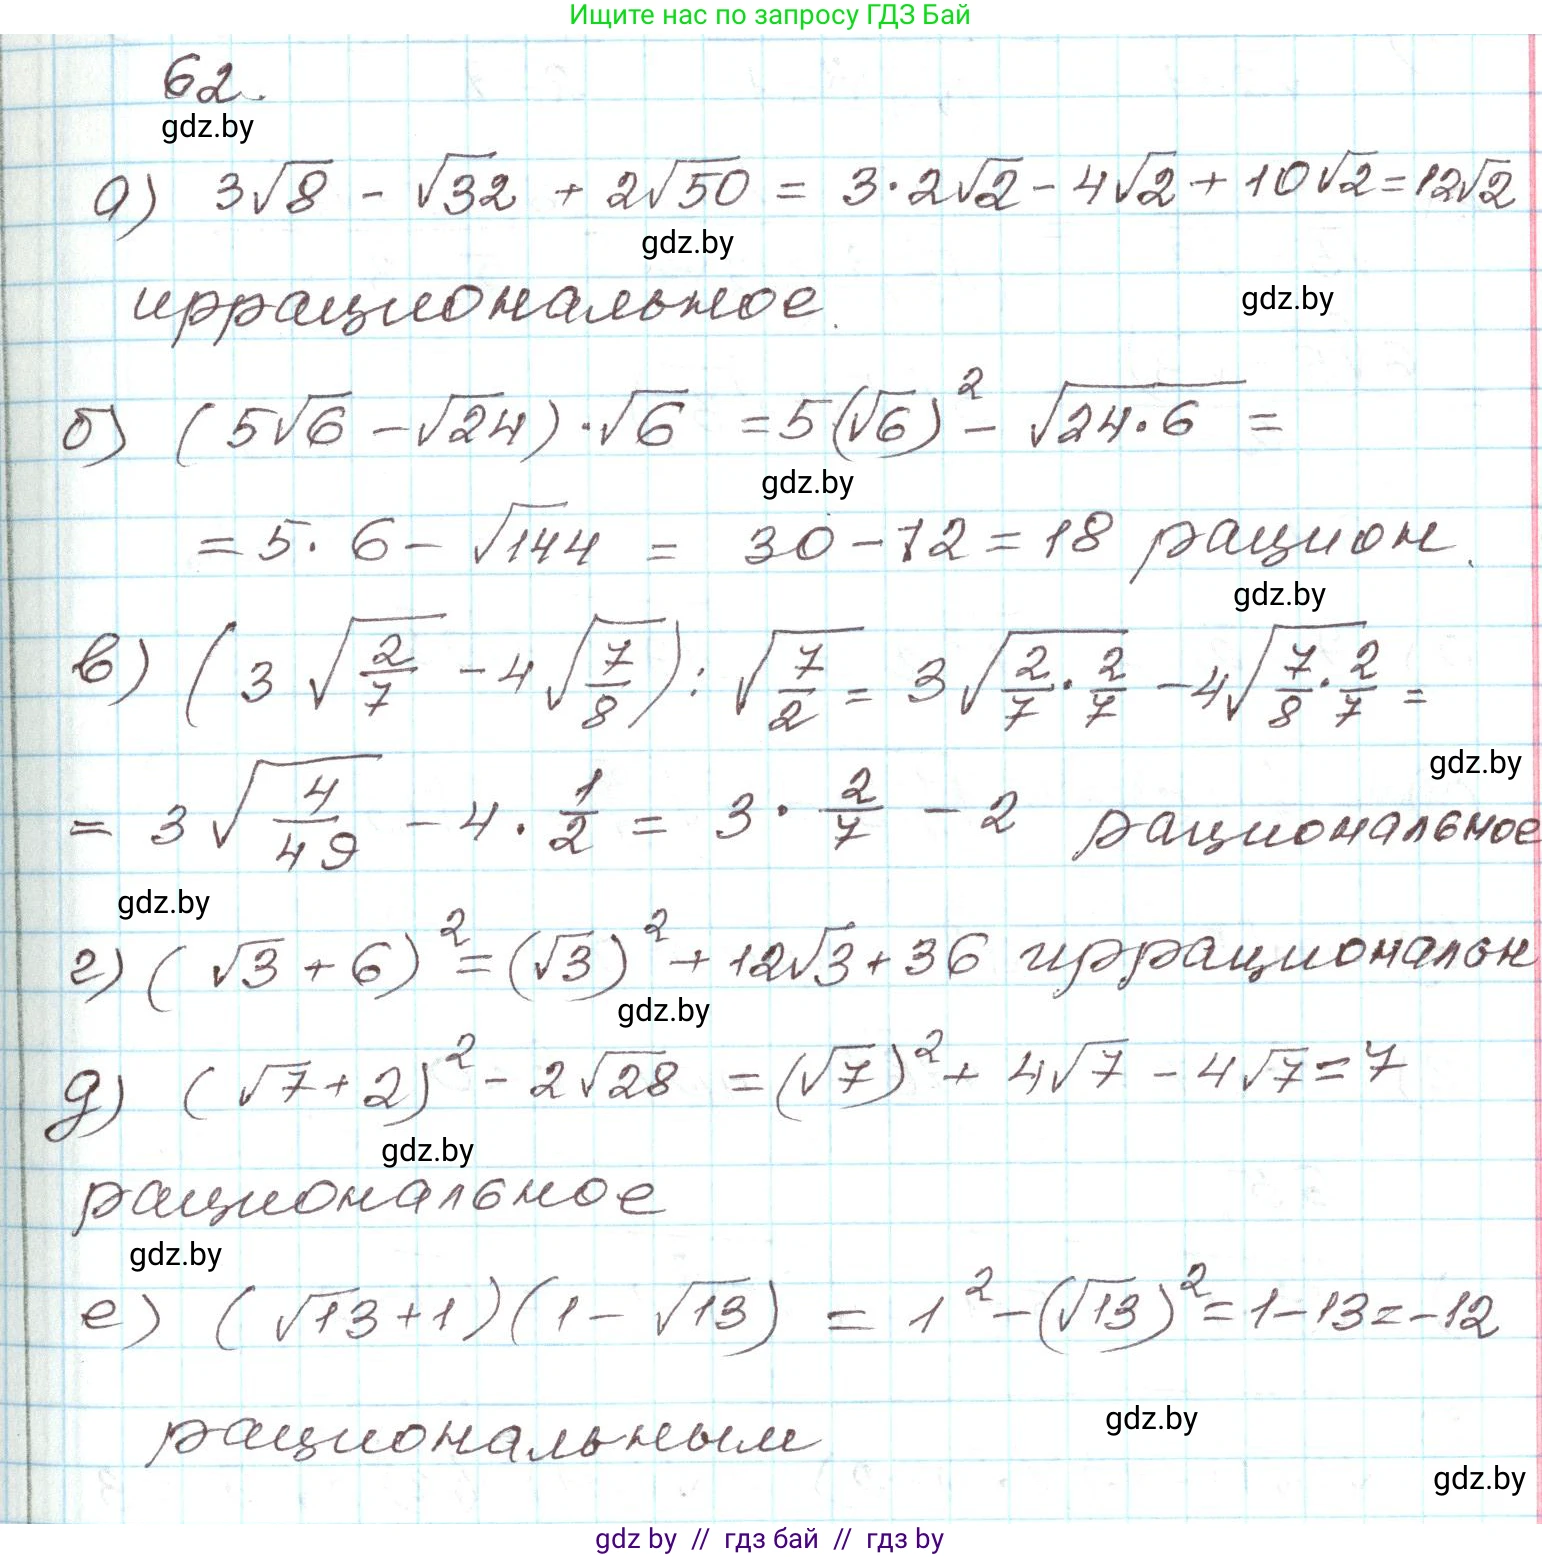 Ищите нас по запросу ГДЗ Бай
62.
gdz.by
а) 3√8 - √32 + 2√50 = 3·2√2 - 4√2 + 10√2 = 12√2
gdz.by
иррациональное.
gdz.by
б) (5√6 - √24)·√6 = 5(√6)² - √(24·6) =
gdz.by
= 5·6 - √144 = 30 - 12 = 18 рацион.
gdz.by
в) (3√(2/7) - 4√(7/8)) : √(7/2) = 3√(2/7 · 2/7) - 4√(7/8 · 2/7) =
gdz.by
= 3√(4/49) - 4 · 1/2 = 3 · 2/7 - 2 рациональное
gdz.by
г) (√3 + 6)² = (√3)² + 12√3 + 36 иррациональн
gdz.by
д) (√7 + 2)² - 2√28 = (√7)² + 4√7 - 4√7 = 7
gdz.by
рациональное
gdz.by
е) (√13 + 1)(1 - √13) = 1² - (√13)² = 1 - 13 = -12
gdz.by
рациональным
gdz.by
gdz.by // гдз бай // гдз by